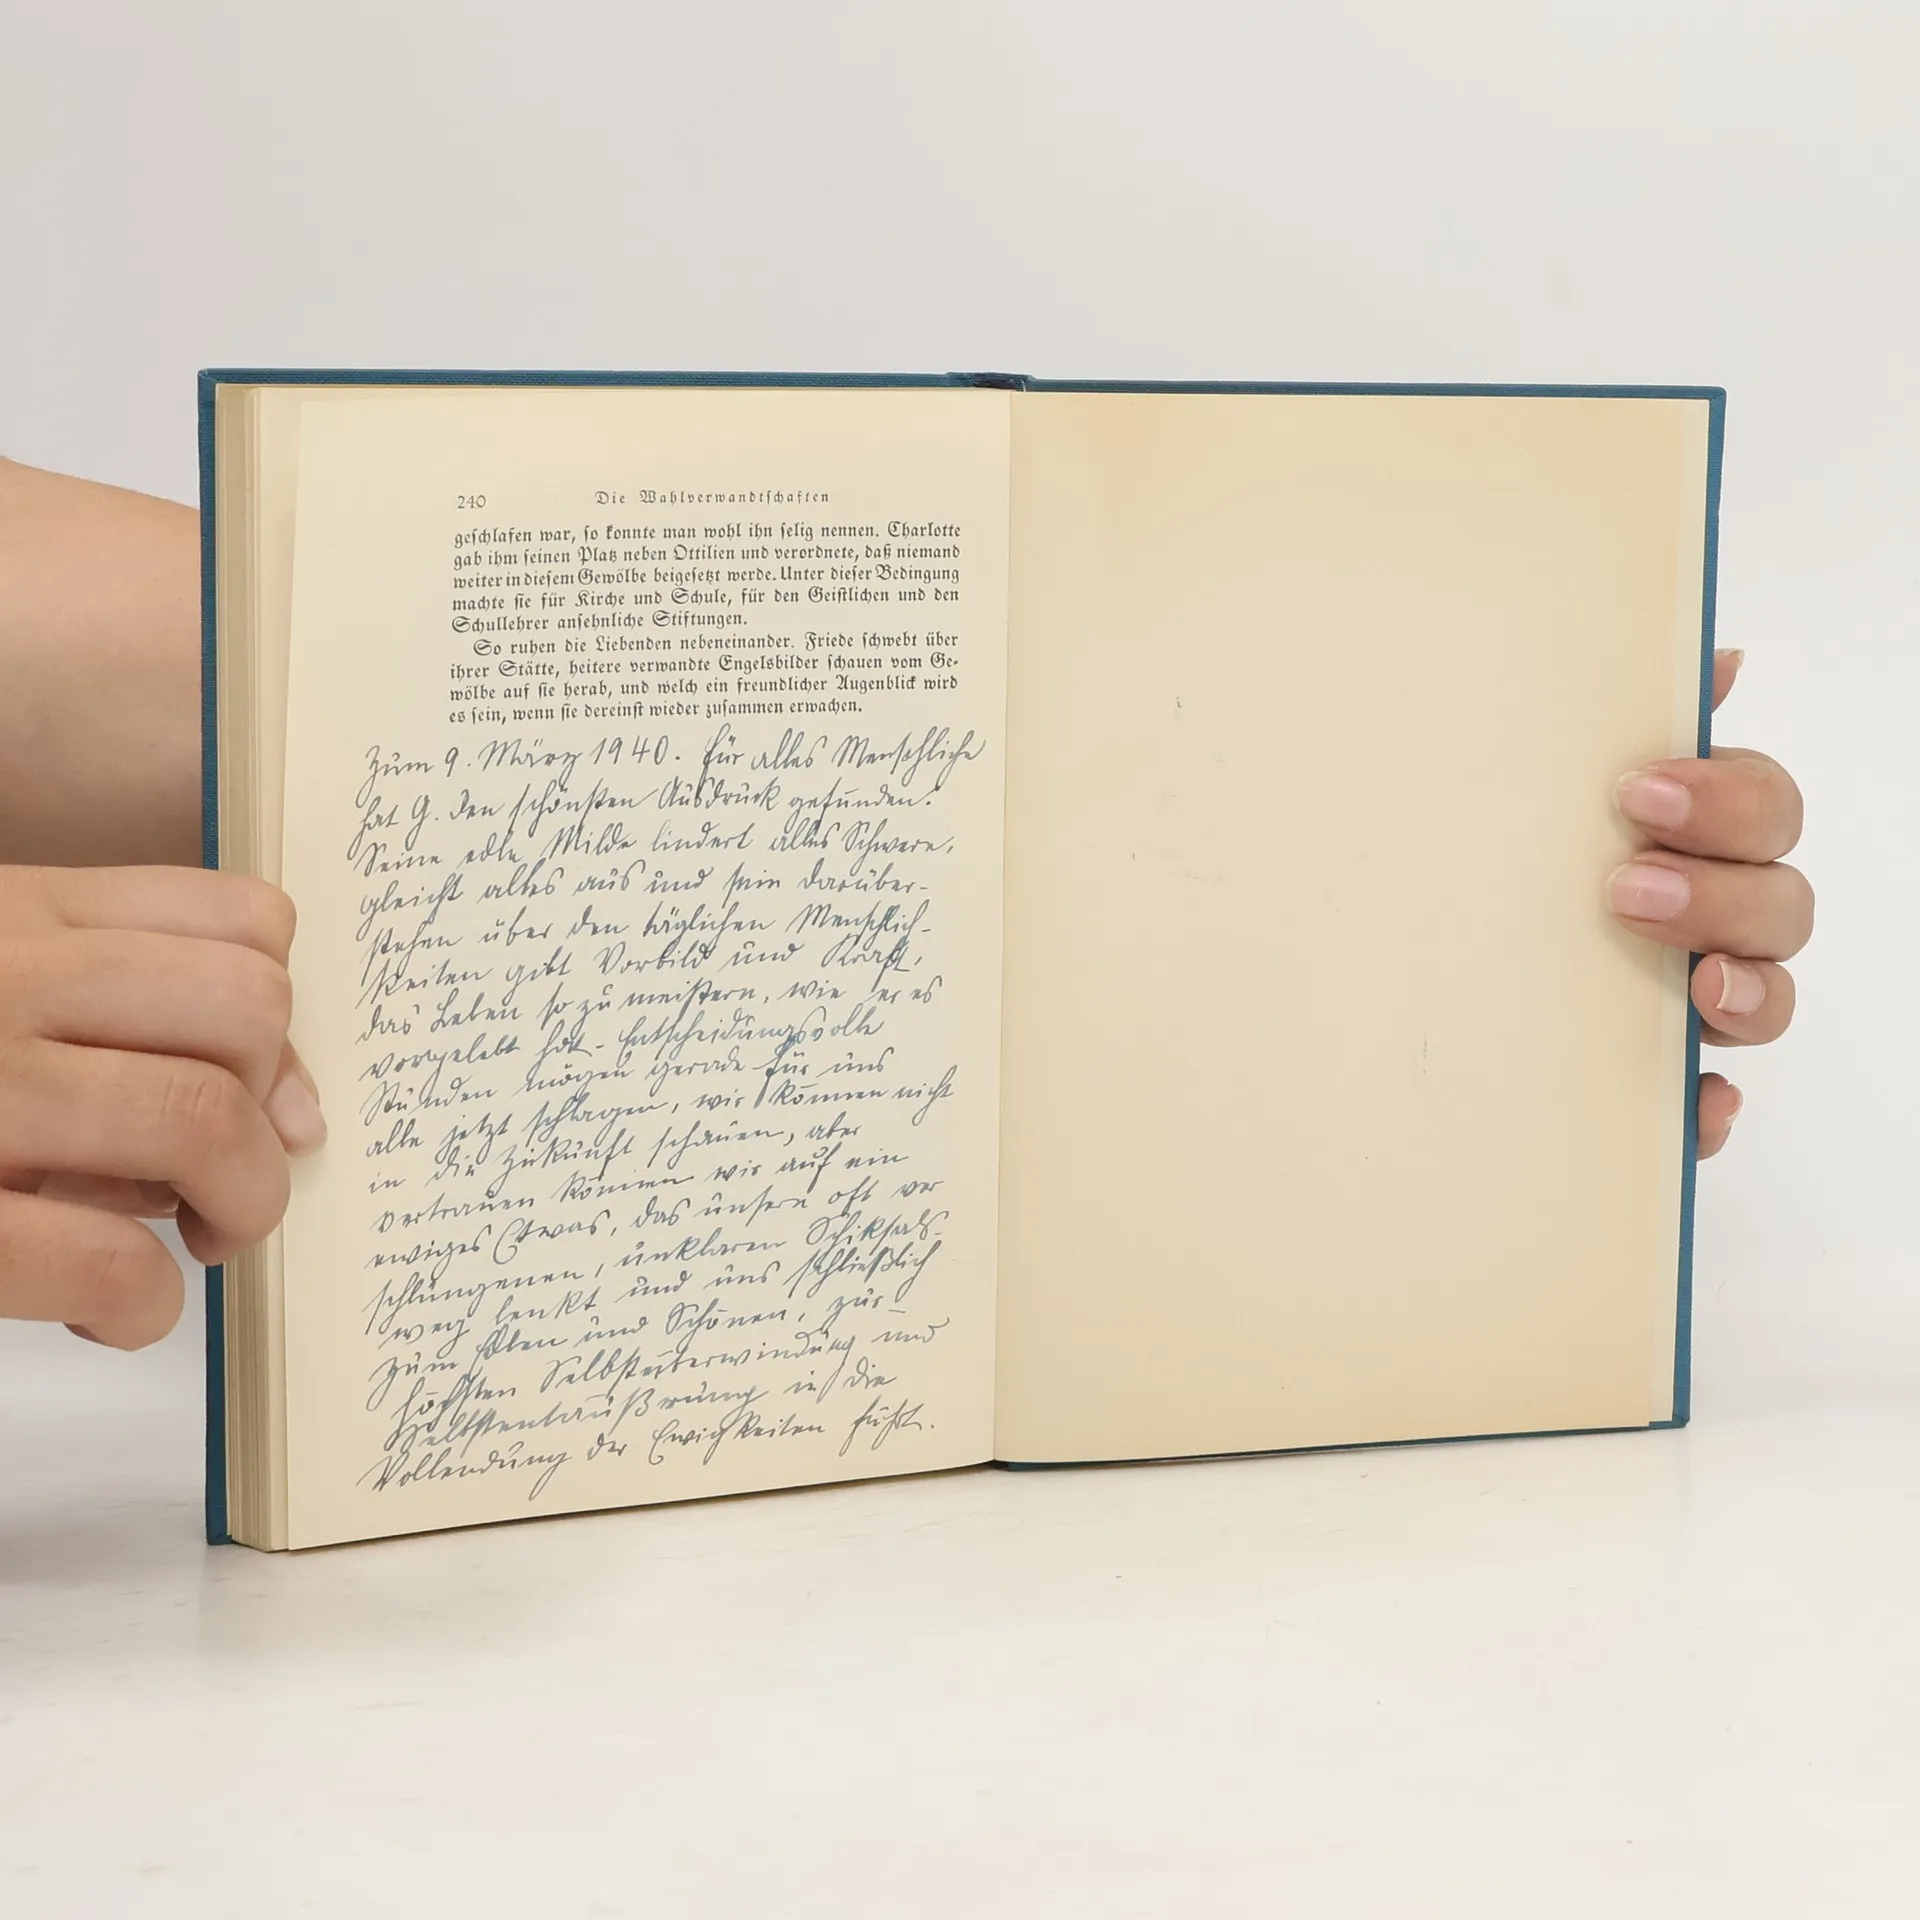 240 Die Wahlverwandtschaften
geschlafen war, so konnte man wohl ihn selig nennen. Charlotte
gab ihm seinen Platz neben Ottilien und verordnete, daß niemand
weiter in diesem Gewölbe beigesetzt werde. Unter dieser Bedingung
machte sie für Kirche und Schule, für den Geistlichen und den
Schullehrer ansehnliche Stiftungen.
So ruhen die Liebenden nebeneinander. Friede schwebt über
ihrer Stätte, heitere verwandte Engelsbilder schauen vom Ge-
wölbe auf sie herab, und welch ein freundlicher Augenblick wird
es sein, wenn sie dereinst wieder zusammen erwachen.
Zum 9. März 1940. Für alles Menschliche
hat G. den schönsten Ausdruck gefunden.
Seine edle Milde lindert alles Schwere,
gleicht alles aus und sein darüber-
stehen über den täglichen Menschlich-
keiten gibt Vorbild und Kraft,
das Leben so zu meistern, wie er es
vorgelebt hat - Entscheidungsvolle
Stunden mögen gerade für uns
alle jetzt schlagen, wir können nicht
in die Zukunft schauen, aber
vertrauen können wir auf ein
ewiges Etwas, das unsern oft ver
schlungenen, unklaren Schiksals-
weg lenkt und uns schließlich
zum Edlen und Schönen, zur
höchsten Selbstüberwindung und
Selbstentäußrung in die
Vollendung der Ewigkeiten führt.